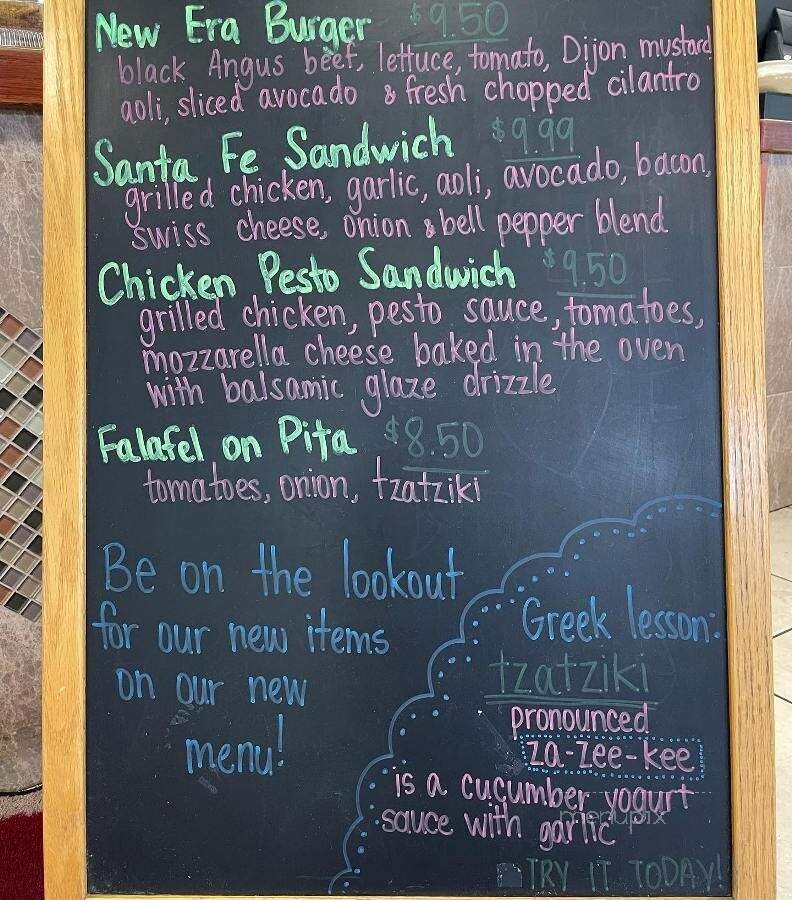 New Era Burger $9.50
black Angus beef, lettuce, tomato, Dijon mustard
aoli, sliced avocado & fresh chopped cilantro
Santa Fe Sandwich $9.99
grilled chicken, garlic, aoli, avocado, bacon,
swiss cheese, onion & bell pepper blend
Chicken Pesto Sandwich $9.50
grilled chicken, pesto sauce, tomatoes,
mozzarella cheese baked in the oven
with balsamic glaze drizzle
Falafel on Pita $8.50
tomatoes, onion, tzatziki
Be on the lookout
for our new items
on our new
menu!
Greek lesson:
tzatziki
pronounced
za-zee-kee
is a cucumber yogurt
sauce with garlic
menupix
TRY IT TODAY!